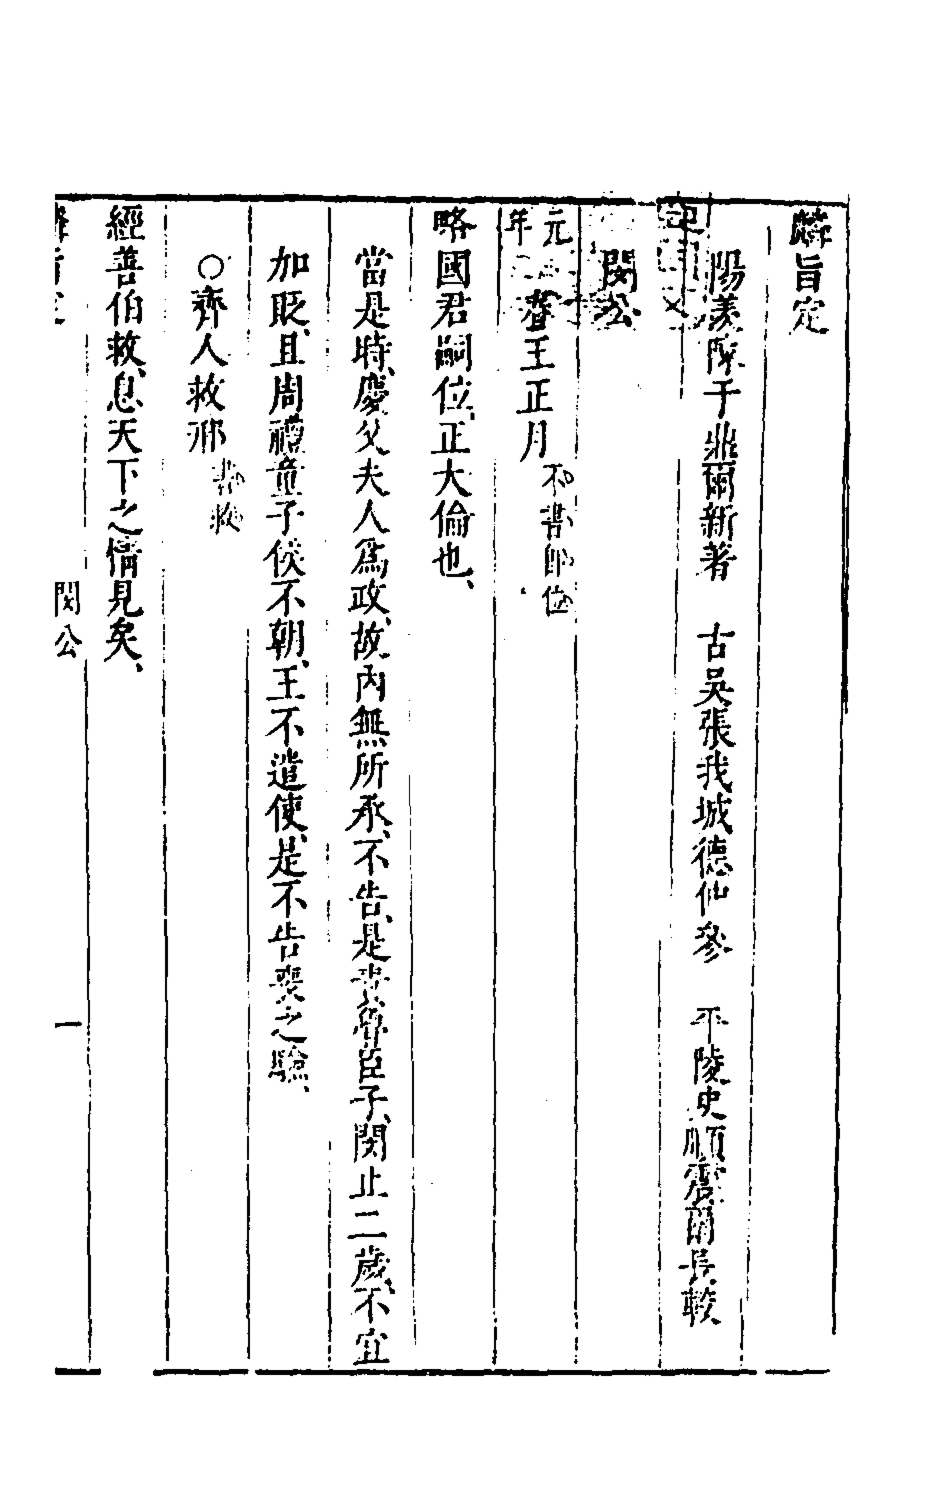 麟旨定
陽羨陳于鼎爾新著　古吳張我城德仲參　平陵史順震爾長較
閔公
元年　春王正月不書即位
略國君嗣位、正大倫也、
當是時、慶父夫人爲政、故內無所承、不告、是責魯臣子、閔止二歲、不宜
加貶、且周禮童子侯不朝、王不遣使、是不告喪之驗、
○齊人救邢書救
經善伯救、息天下之情見矣、
麟旨定　閔公　一